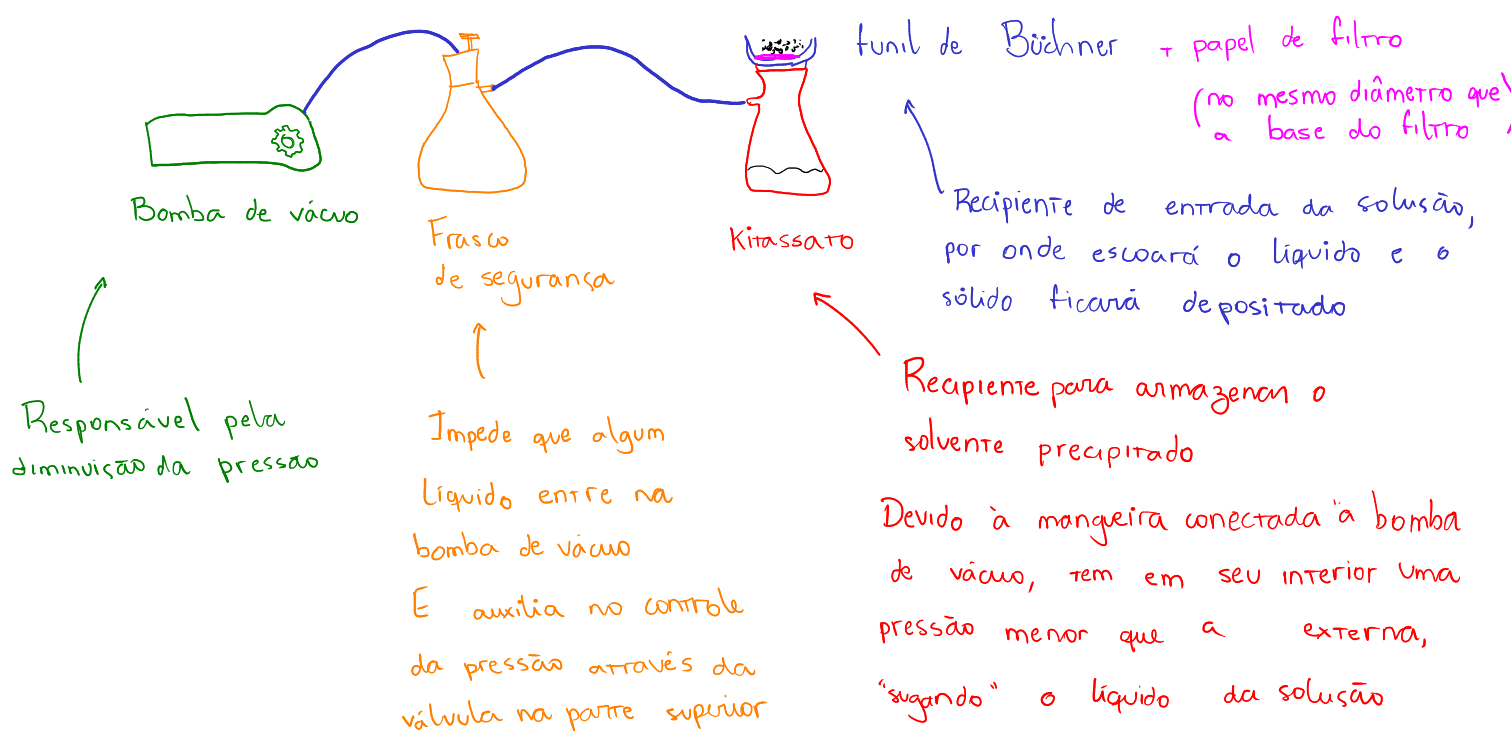 funil de Büchner + papel de filtro
(no mesmo diâmetro que
a base do filtro)
Bomba de vácuo
Frasco
de segurança
Kitassato
Recipiente de entrada da solusão,
por onde escoará o líquido e o
sólido ficará depositado
Responsável pela
diminuição da pressão
Impede que algum
líquido entre na
bomba de vácuo
E auxilia no controle
da pressão através da
válvula na parte superior
Recipiente para armazenar o
solvente precipitado
Devido à mangueira conectada à bomba
de vácuo, tem em seu interior uma
pressão menor que a externa,
"sugando" o líquido da solução